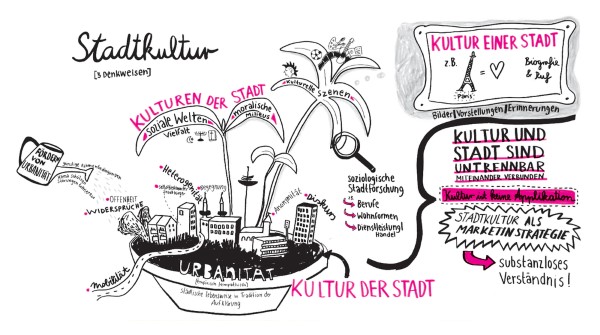 Stadtkultur
[3 Denkweisen]
KULTUREN DER STADT
Soziale Welten
Vielfalt
moralische
Milieus
Kulturelle Szenen
FÖRDERN
VON
URBANITÄT
OFFENHEIT
WIDERSPRÜCHE
Heterogenität
Begegnung
Anonymität
Diskurs
Mobilität
URBANITÄT
städtische Lebensweise in Tradition der
Aufklärung
soziologische
Stadtforschung
z.B. Berufe
Wohnformen
Dienstleistung/
Handel
KULTUR DER STADT
KULTUR EINER STADT
z.B.
Paris
=
Biografie
& Ruf
Bilder/Vorstellungen/Erinnerungen
KULTUR UND
STADT SIND
UNTRENNBAR
MITEINANDER VERBUNDEN.
Kultur ist keine Applikation
STADTKULTUR ALS
MARKETINGSTRATEGIE
substanzloses
Verständnis!